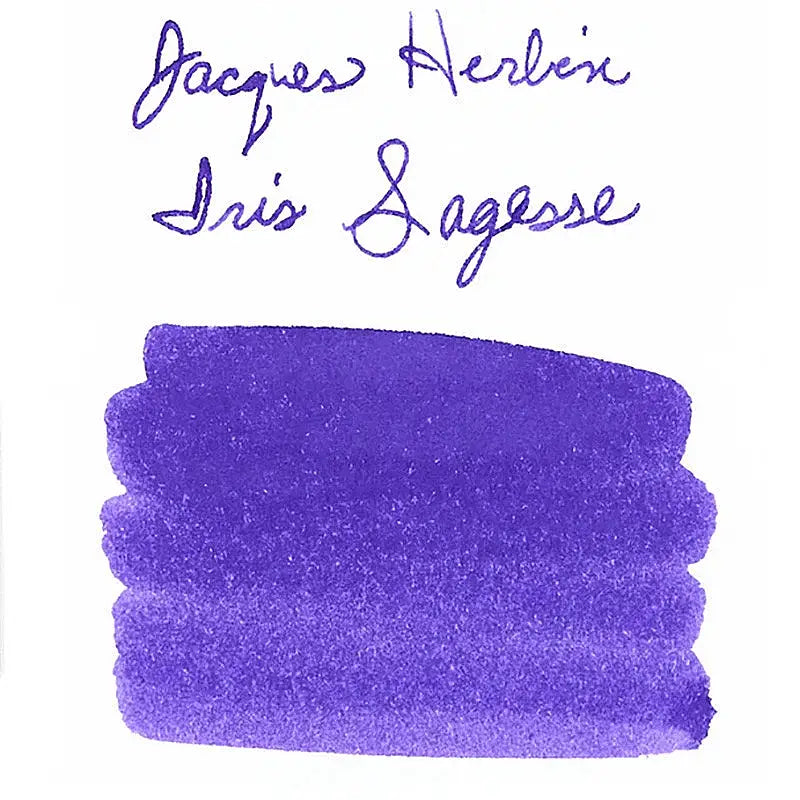 Jacques Herbin
Iris Sagesse